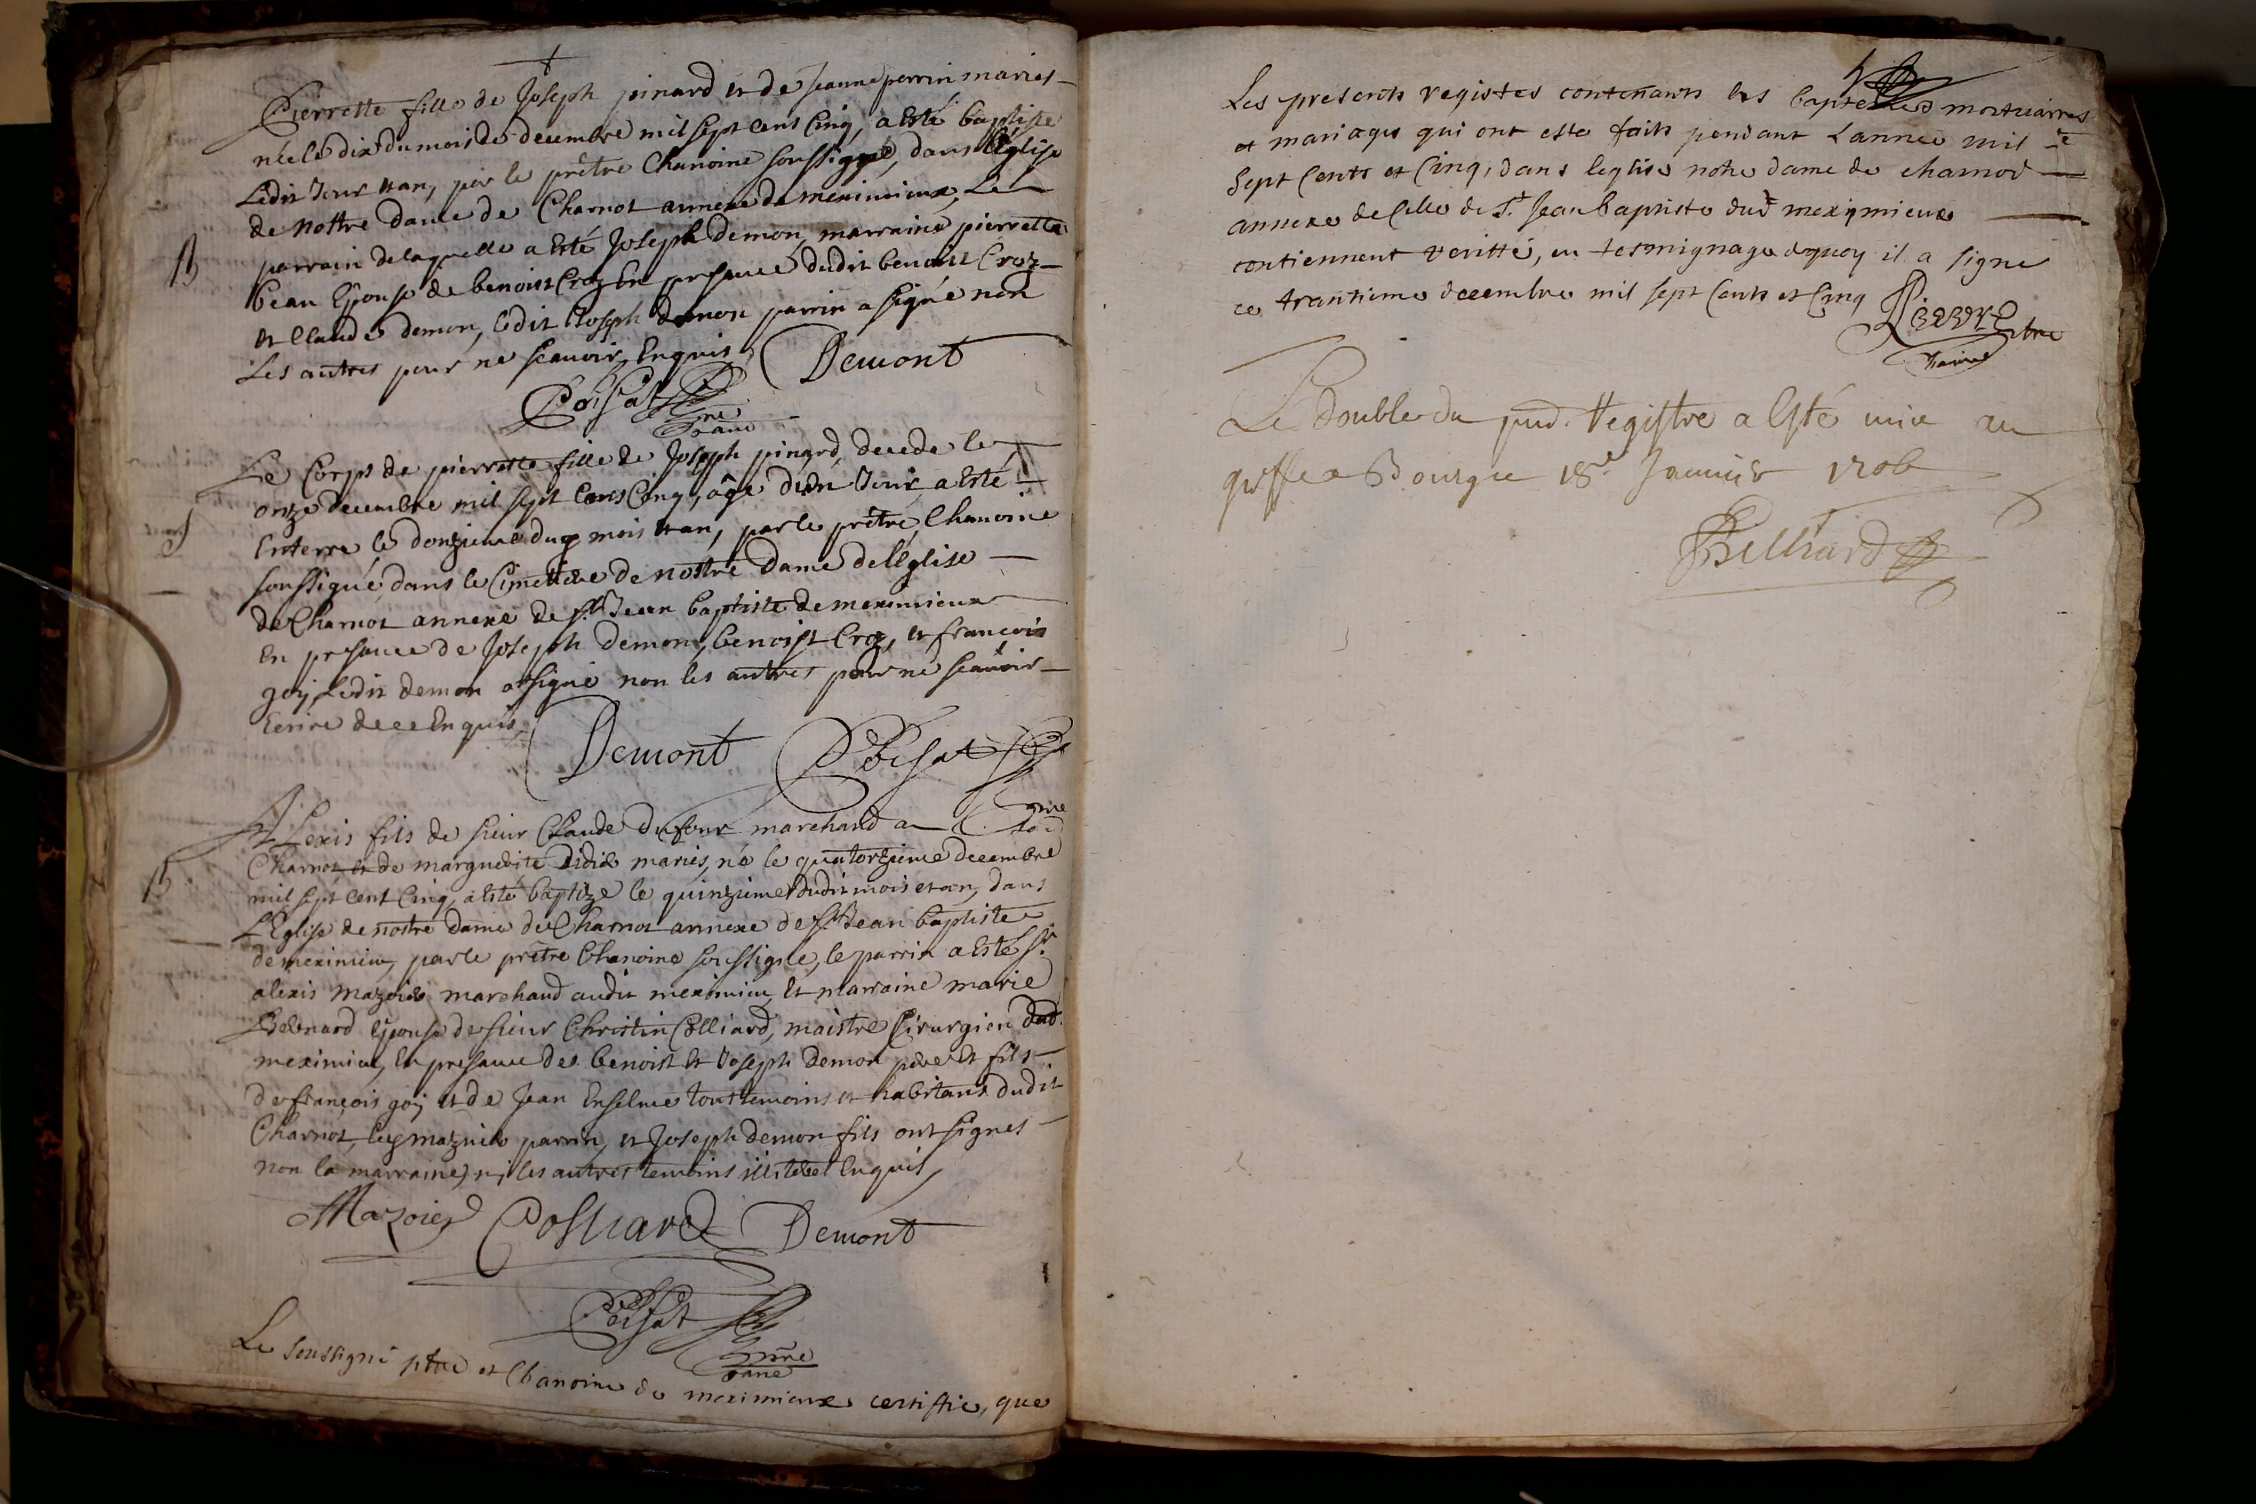 Pierrette fille de Joseph pinard et de Jeanne perrin maries
née le dix du mois de decembre mil sept cens Cinq, a esté baptisée
Ledit Jour et an, par le prêtre Chanoine soussigné, dans l'Eglise
de Nottre dame de Charnot annexe de meximieux, Le
parrain de laquelle a esté Joseph demon, marraine pierrette
beau Epouse de benoist Croz En presance dudit benoist Croz
et Claude demon, ledit Joseph demon parrin a signé non
Les autres pour ne scavoir, Enquis
Demont
Poisat
B
Le Corps de pierrette fille de Joseph pinard, decede le
onze decembre mil sept Cens Cinq, âge d'un Jour, a esté
Enterre le douzieme du mois et an, par le prêtre Chanoine
soussigné, dans le Cimettiere de nostre Dame de l'Eglise
de Charnot annexe de St Jean baptiste de meximieux
En presance de Joseph demon, benoist Croz, et francois
goy, Ledit demon a signé non les autres pour ne scavoir
Ecrire de ce Enquis,
Demont Poisat
Alexis fils de sieur Claude dufour marchand a
Charnot et de marguerite didier mariés, né le quatorzieme decembre
mil sept cent Cinq, a esté baptize le quinzieme dudit mois et an, dans
L'Eglise de nostre dame de Charnot annexe de St Jean baptiste
de meximieu, par le prêtre Chanoine soussigné, le parrin a esté Sr
alexis Mazoier marchand audit meximieu, Et marraine marie
Bernard Epouse de sieur Christin Colliard, maistre Cirurgien dud
meximieu, En presance de benoist Et Joseph demon pere Et fils
de françois goy et de Jean Enselme tous temoins et habitans dudit
Charnot, parrin, et Joseph demon fils ont signes
non la marraine, ni les autres temoins illiteres Enquis
B
Mazoier Colliard Demont
Poisat
Le soussigné ptre et Chanoine de meximieux certiffie, que
Les presents registes contenants les baptesmes mortuaires
et mariages qui ont este faits pendant Lannee mil
Sept Cents et Cinq, dans leglise notre dame de charnod
annexe de Celle de St Jean baptiste dud meximieux
contiennent veritté, en tesmoignage dequoy il a signe
ce trantieme decembre mil sept Cents et Cinq
Le double du pnt. Registre a Esté mis au
greffe a Bourg ce 18e Janvier 1706